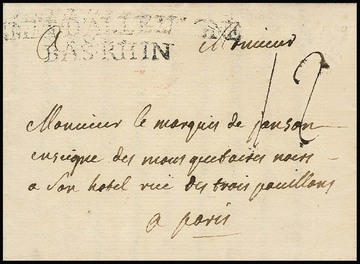 BAS RHIN
Monsieur
12
Monsieur le marquis de janson
enseigne des mousquetaires noirs
a son hotel rüe des trois pavillons
a paris